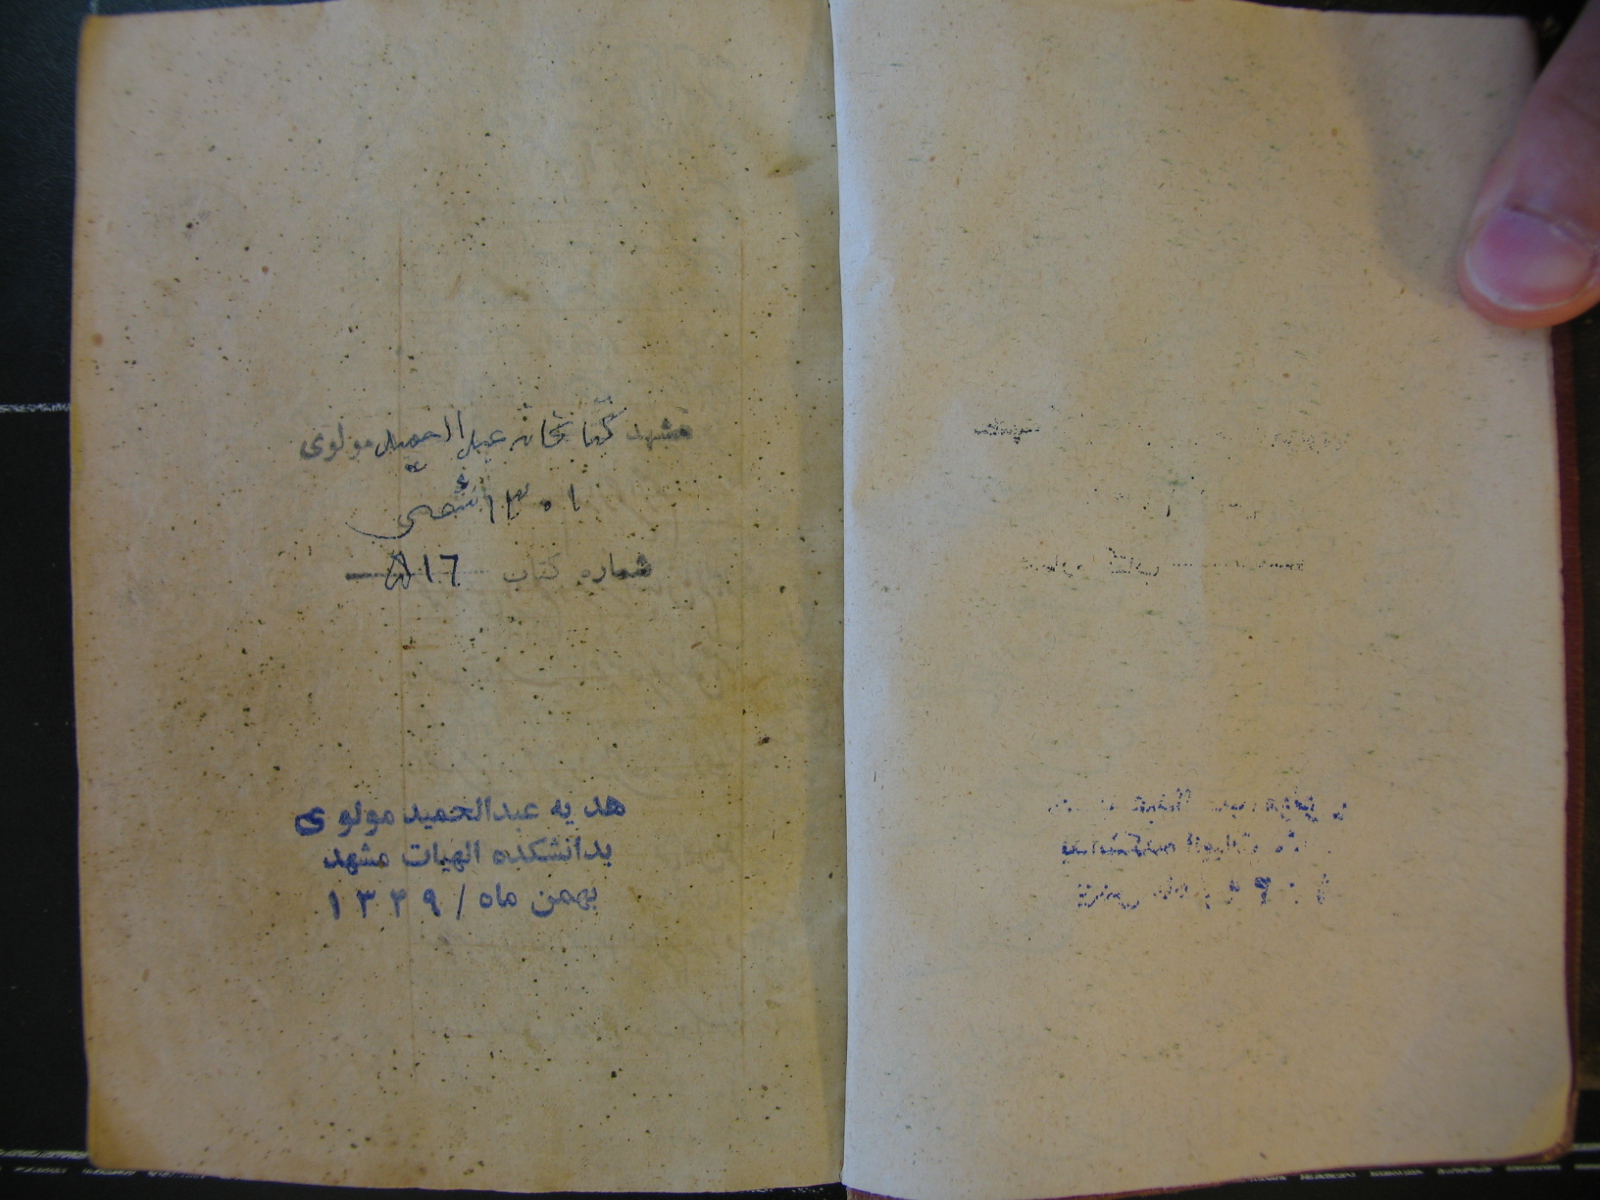 مشهد کتابخانه عبدالحمید مولوی
۱۳۰۱ شمسی
شماره کتاب ۸۱۶
هدیه عبدالحمید مولوی
بدانشکده الهیات مشهد
بهمن ماه / ۱۳۳۹